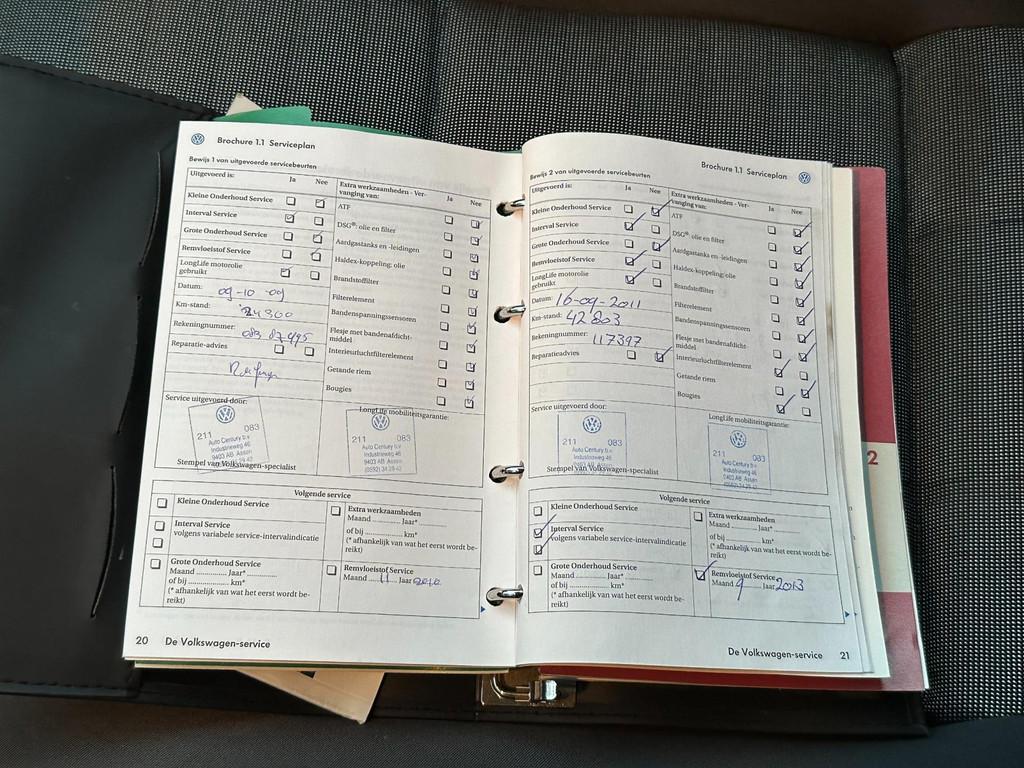 Brochure 1.1 Serviceplan
Bewijs 1 van uitgevoerde servicebeurten
Uitgevoerd is: Ja Nee
Kleine Onderhoud Service
Interval Service
Grote Onderhoud Service
Remvloeistof Service
LongLife motorolie
gebruikt
Datum: 09-10-09
Km-stand:
Rekeningnummer:
Reparatie-advies
Extra werkzaamheden - Ver-
vanging van: Ja Nee
ATF
DSG®: olie en filter
Aardgastanks en -leidingen
Haldex-koppeling: olie
Brandstoffilter
Filterelement
Bandenspanningssensoren
Flesje met bandenafdicht-
middel
Interieurluchtfilterelement
Getande riem
Bougies
Service uitgevoerd door:
211 083
Auto Century b.v
Industrieweg 46
9403 AB Assen
Stempel van Volkswagen-specialist
LongLife mobiliteitsgarantie:
211 083
Auto Century b.v
Industrieweg 46
9403 AB Assen
(0592) 34 28 42
Volgende service
Kleine Onderhoud Service
Interval Service
volgens variabele service-intervalindicatie
Grote Onderhoud Service
Maand ............ Jaar* ............
of bij ........................ km*
(* afhankelijk van wat het eerst wordt be-
reikt)
Extra werkzaamheden
Maand ............ Jaar* ............
of bij ........................ km*
(* afhankelijk van wat het eerst wordt be-
reikt)
Remvloeistof Service
Maand 11 Jaar 2010
20 De Volkswagen-service
Brochure 1.1 Serviceplan
Bewijs 2 van uitgevoerde servicebeurten
Uitgevoerd is: Ja Nee
Kleine Onderhoud Service
Interval Service
Grote Onderhoud Service
Remvloeistof Service
LongLife motorolie
gebruikt
Datum: 16-09-2011
Km-stand: 42803
Rekeningnummer: 117397
Reparatieadvies
Extra werkzaamheden - Ver-
vanging van: Ja Nee
ATF
DSG®: olie en filter
Aardgastanks en -leidingen
Haldex-koppeling: olie
Brandstoffilter
Filterelement
Bandenspanningssensoren
Flesje met bandenafdicht-
middel
Interieurluchtfilterelement
Getande riem
Bougies
Service uitgevoerd door:
211 083
Auto Century b.v
Industrieweg 46
Stempel van Volkswagen-specialist
LongLife mobiliteitsgarantie:
211 083
Auto Century b.v
Industrieweg 46
9403 AB Assen
(0592) 34 28 42
Volgende service
Kleine Onderhoud Service
Interval Service
volgens variabele service-intervalindicatie
Grote Onderhoud Service
Maand ............ Jaar* ............
of bij ........................ km*
(* afhankelijk van wat het eerst wordt be-
reikt)
Extra werkzaamheden
Maand ............ Jaar* ............
of bij ........................ km*
(* afhankelijk van wat het eerst wordt be-
reikt)
Remvloeistof Service
Maand 9 Jaar 2013
De Volkswagen-service 21
2